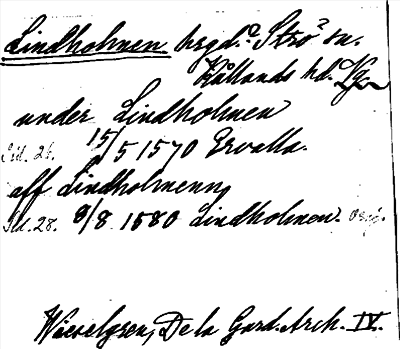 Lindholmen hsgd. Strö sn.
Kållands hd. Vg.
under Lindholmen
Sid. 26. 15/5 1570 Ervalla.
aff Lindholmenn
Sid. 28. 9/8 1580 Lindholmen.
Wieselgren, De la Gard. Arch. IV.